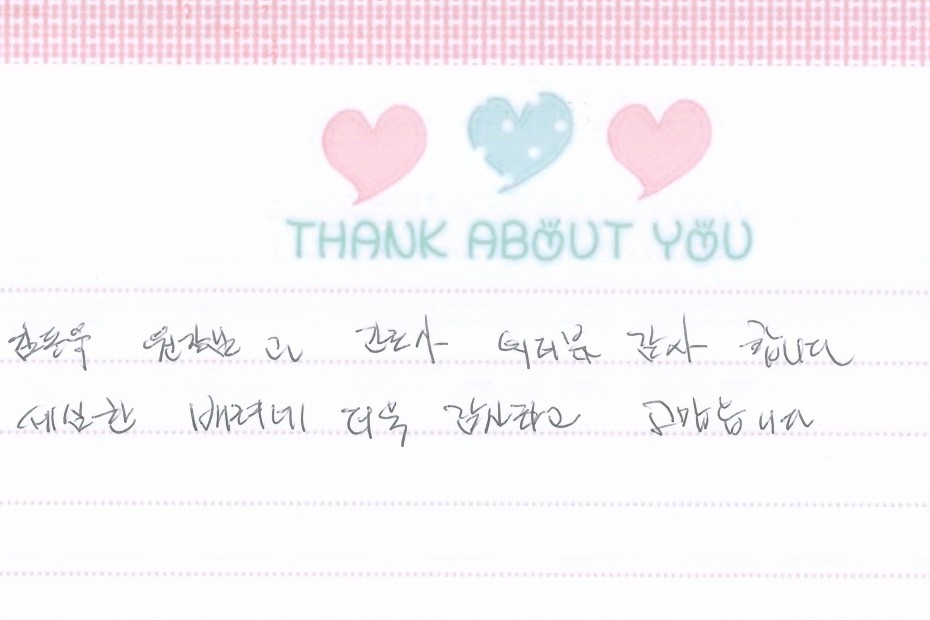 THANK ABOUT YOU
김동욱 원장님과 간호사 여러분 감사 합니다
세심한 배려에 더욱 감사하고 고맙습니다